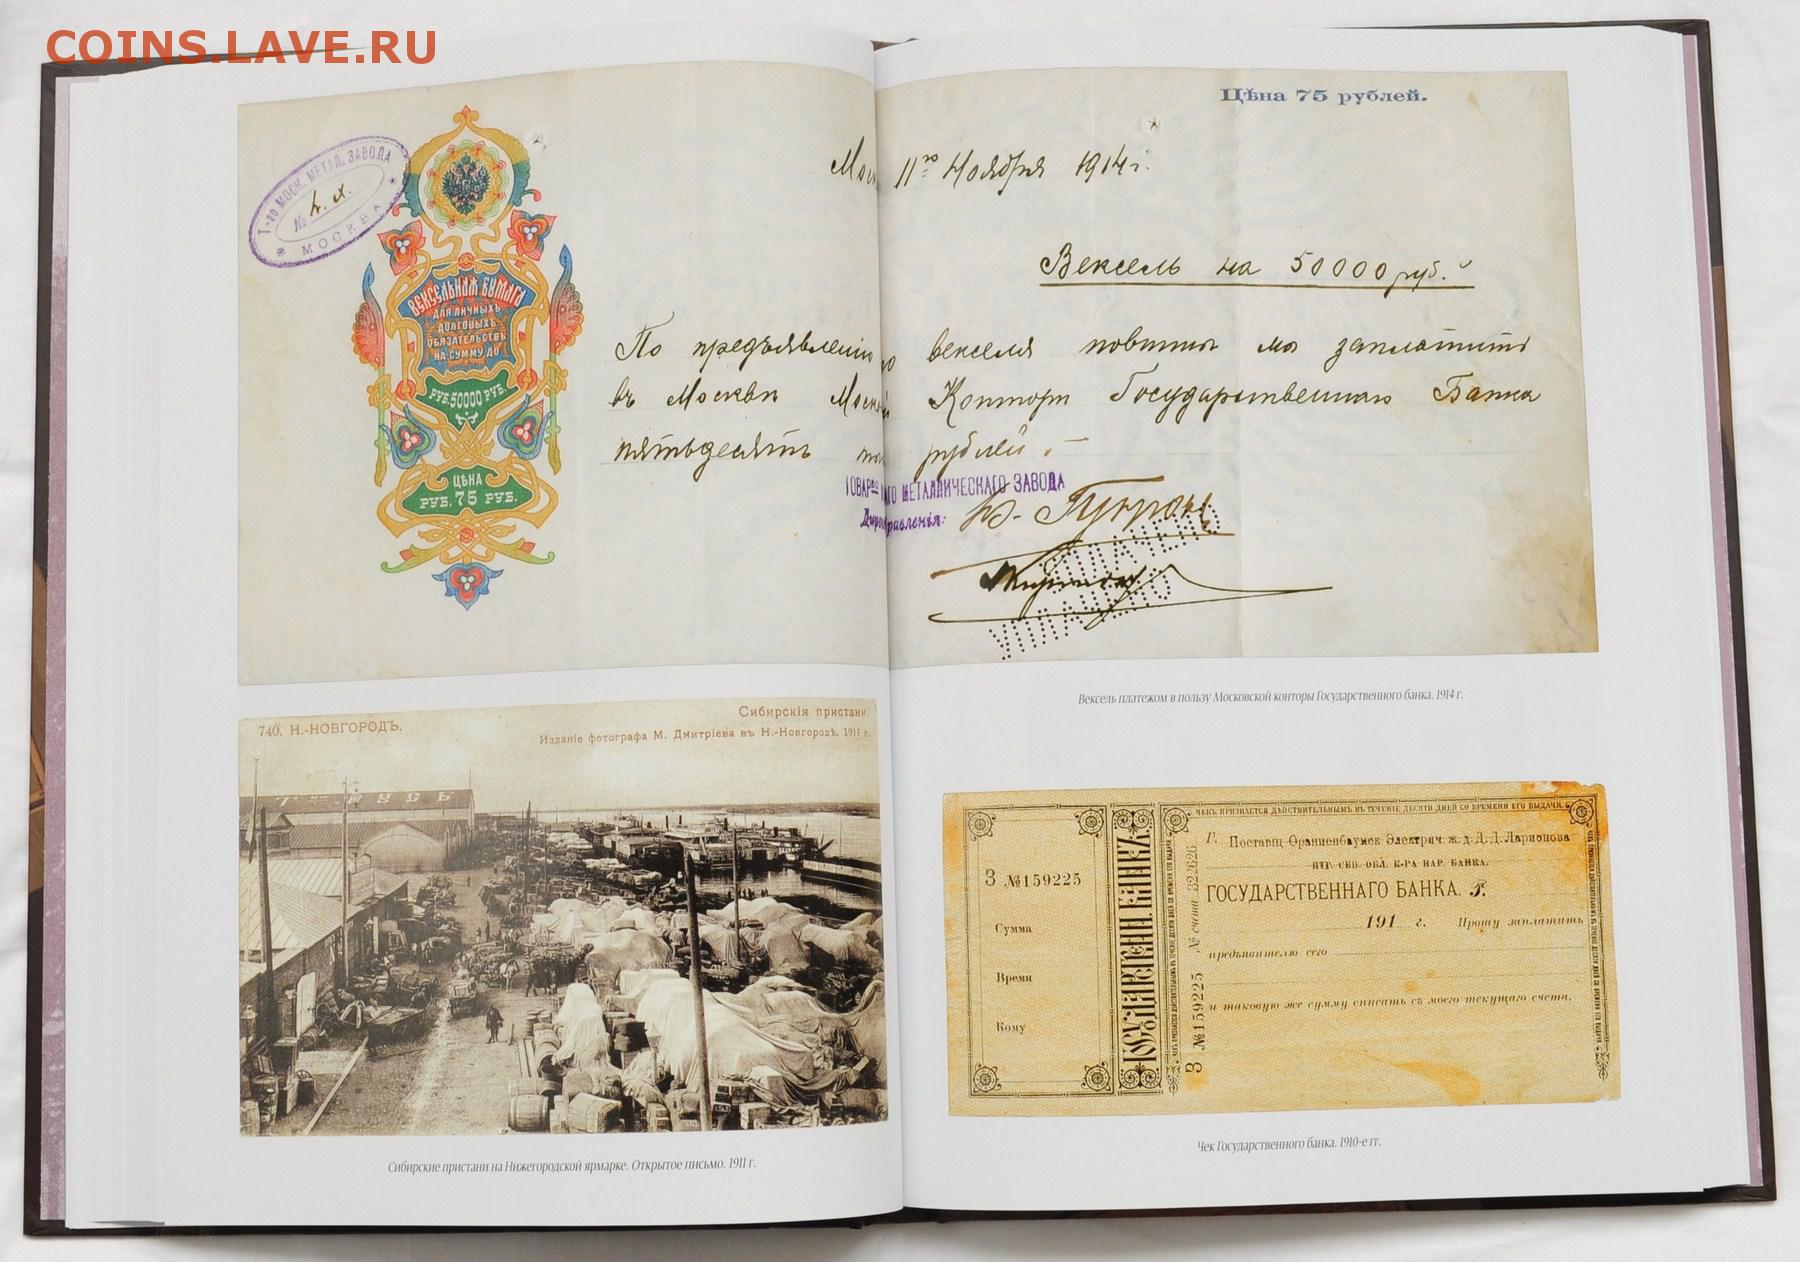 COINS.LAVE.RU
Цѣна 75 рублей.
Т-во МОСК. МЕТАЛ. ЗАВОДА
№
МОСКВА
11го Ноября 1914 г.
Вексель на 50000 руб.
ВЕКСЕЛЬНАЯ БУМАГА
ДЛЯ ЛИЧНЫХЪ
ДОЛГОВЫХЪ
ОБЯЗАТЕЛЬСТВЪ
НА СУММУ ДО
РУБ. 50000 РУБ.
ЦѢНА
РУБ. 75 РУБ.
По векселя повинны мы заплатить
въ Москвѣ Конторѣ Государственнаго Банка
пятьдесятъ рублей.
МЕТАЛЛИЧЕСКАГО ЗАВОДА
УПЛАЧЕНО
УПЛАЧЕНО
Вексель платежом в пользу Московской конторы Государственного банка. 1914 г.
740. Н.-НОВГОРОДЪ.
Сибирскія пристани.
Изданіе фотографа М. Дмитріева въ Н.-Новгородѣ. 1911 г.
Сибирские пристани на Нижегородской ярмарке. Открытое письмо. 1911 г.
ЧЕКЪ ПРИЗНАЕТСЯ ДѢЙСТВИТЕЛЬНЫМЪ ВЪ ТЕЧЕНІЕ ДЕСЯТИ ДНЕЙ СО ВРЕМЕНИ ЕГО ВЫДАЧИ.
З №159225
Сумма
Время
Кому
ГОСУДАРСТВЕН. БАНКЪ
З №159225 № счета 322626
Г. Поставщ. Ораниенбаумск. Электрич. ж. д. Д. Д. Ларионова
ПТГ. СБЕ. ОБЛ. К-РА НАР. БАНКА.
ГОСУДАРСТВЕННАГО БАНКА. Г.
191 г. Прошу заплатить
предъявителю сего
и таковую же сумму списать съ моего текущаго счета.
Чек Государственного банка. 1910-е гг.